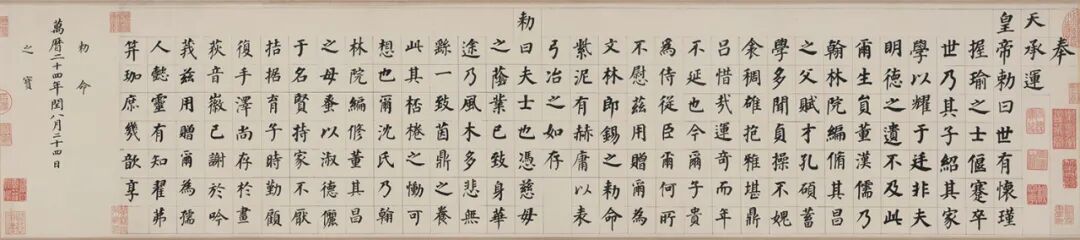 奉
天承運
皇帝勅曰世有懷瑾
握瑜之士偃蹇卒
世乃其子紹其家
學以耀于廷非夫
明德之遺不及此
爾生員董漢儒乃
翰林院編脩其昌
之父賦才孔碩蓄
學多聞貞操不媿
衾稠雄抱雅堪鼎
呂惜哉運奇而年
不延也今爾子貴
為侍從臣爾何所
不慰茲用贈爾為
文林郎錫之勅命
紫泥有赫庸以表
弓冶之如存
勅曰夫士也憑慈母
之蔭業已致身華
途乃風木多悲無
繇一致茵鼎之養
此其栝棬之慟可
想也爾沈氏乃翰
林院編修董其昌
之母蚤以淑德儷
于名賢持家不厭
拮据育子時勤顧
復手澤尚存於畫
荻音徽已謝於吟
莪茲用贈爾為孺
人懿靈有知翟茀
笄珈庶幾歆享
勅命
萬曆二十四年閏八月二十四日
之寶